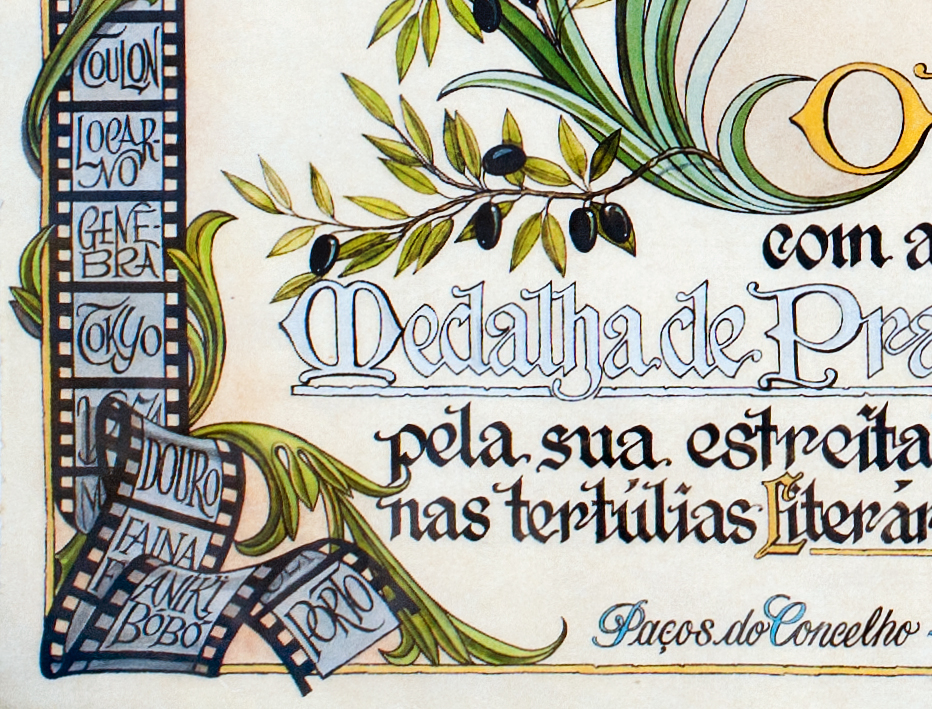 TOULON
LOCAR-
NO
GENE-
BRA
TOKYO
DOURO
FAINA
F
ANIKI
BÓBÓ
PORTO
O
com a
Medalha de Pra
pela sua estreita
nas tertúlias Literár
Paços do Concelho -